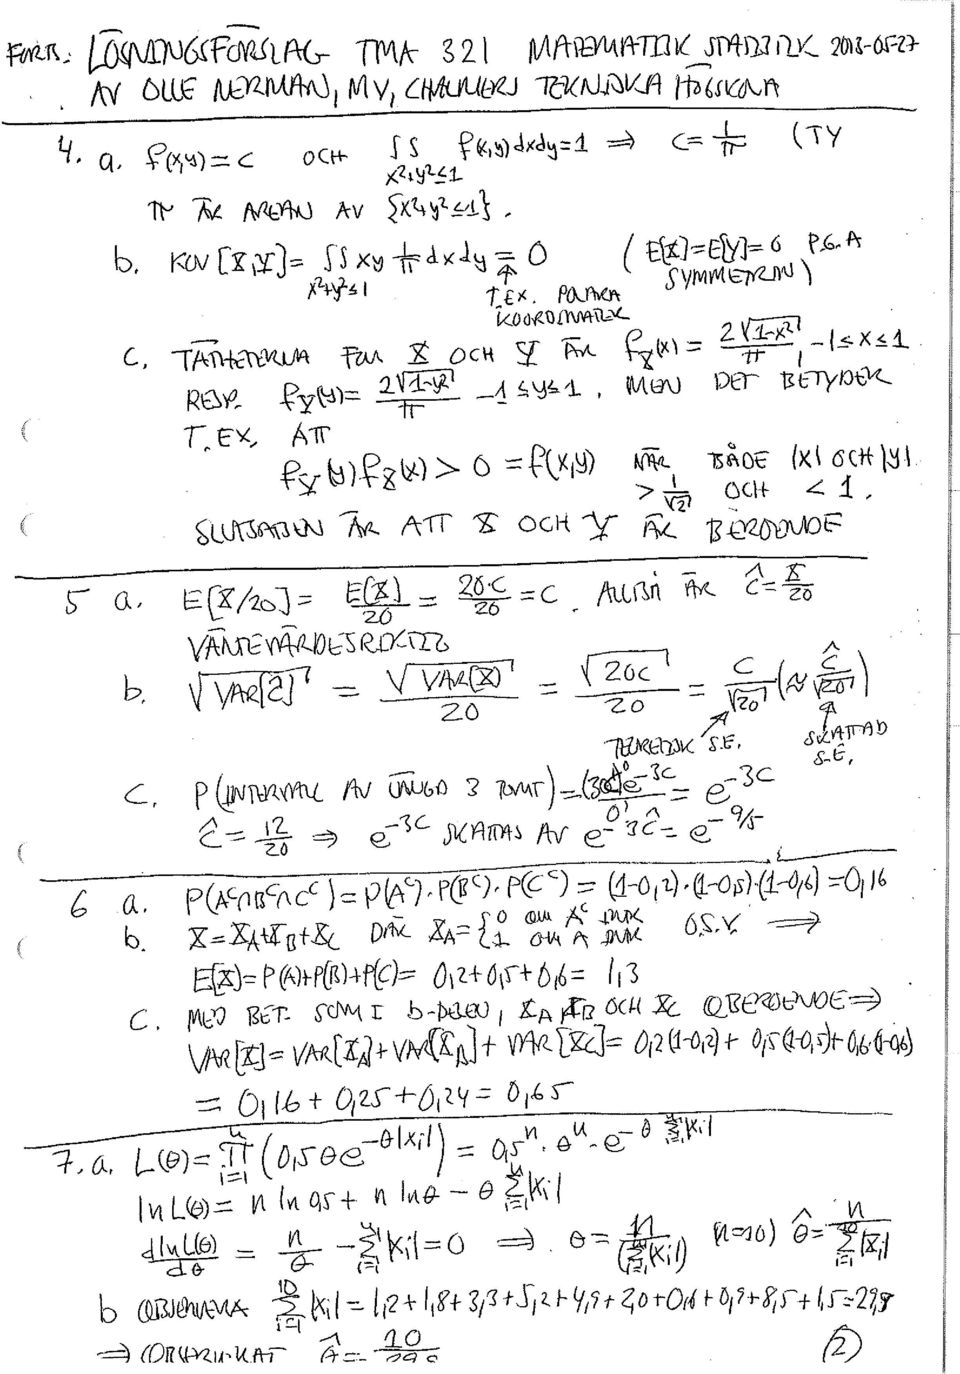 FORTS: LÖSNINGSFÖRSLAG TMA 321 MATEMATISK STATISTIK 2013-05-27
AV OLLE NERMAN, MV, CHALMERS TEKNISKA HÖGSKOLA
4. a. f(x,y) = c OCH ∫∫ f(x,y) dxdy = 1 ⇒ c = 1/π (TY
x²+y²≤1
π ÄR AREAN AV {x²+y²≤1}.
b. KOV[X,Y] = ∫∫ xy 1/π dxdy = 0 (E[X]=E[Y]=0 P.G.A
x²+y²≤1 T.EX. POLÄRA SYMMETRIN)
KOORDINATER
c. TÄTHETERNA FÖR X OCH Y ÄR f_X(x) = 2√(1-x²)/π, -1≤x≤1
RESP. f_Y(y) = 2√(1-y²)/π -1≤y≤1, MEN DET BETYDER
T.EX. ATT
f_Y(y) f_X(x) > 0 = f(x,y) NÄR BÅDE |x| OCH |y|
> 1/√2 OCH < 1.
SLUTSATSEN ÄR ATT X OCH Y ÄR BEROENDE
5 a. E[X/20] = E[X]/20 = 20·c/20 = c. ALLTSÅ ÄR ĉ = X/20
VÄNTEVÄRDESRIKTIG
b. √VAR[ĉ] = √VAR(X)/20 = √20c/20 = c/√20 (≈ ĉ/√20)
TEORETISK S.E. SKATTAD
S.E.
c. P(INTERVALL AV LÄNGD 3 TOMT) = (3c)⁰e^-3c/0! = e^-3c
ĉ = 12/20 ⇒ e^-3c SKATTAS AV e^-3ĉ = e^-9/5
6 a. P(Aᶜ∩Bᶜ∩Cᶜ) = P(Aᶜ)·P(Bᶜ)·P(Cᶜ) = (1-0,2)·(1-0,5)·(1-0,6) = 0,16
b. X = X_A+X_B+X_C DÄR X_A = {0 OM Aᶜ INTR O.S.V. ⇒
1 OM A INTR
E[X] = P(A)+P(B)+P(C) = 0,2+0,5+0,6 = 1,3
c. MED BET. SOM I b-DELEN, X_A, X_B OCH X_C OBEROENDE ⇒
VAR[X] = VAR[X_A] + VAR[X_B] + VAR[X_C] = 0,2(1-0,2) + 0,5(1-0,5) + 0,6(1-0,6)
= 0,16 + 0,25 + 0,24 = 0,65
7. a. L(θ) = ∏_{i=1}^n (0,5θe^{-θ|x_i|}) = 0,5ⁿ·θⁿ·e^{-θ∑_{i=1}^n|x_i|}
ln L(θ) = n ln 0,5 + n ln θ - θ ∑_{i=1}^n |x_i|
d ln L(θ)/dθ = n/θ - ∑_{i=1}^n |x_i| = 0 ⇒ θ = n/(∑_{i=1}^n |x_i|) (n=10) θ̂ = n/∑_{i=1}^{10} |X_i|
b OBSERVERA ∑_{i=1}^{10} |x_i| = 1,2+1,8+3,3+5,2+4,9+2,0+0,6+0,9+8,5+1,5=29,9
⇒ θ̂ = 10/
(2)